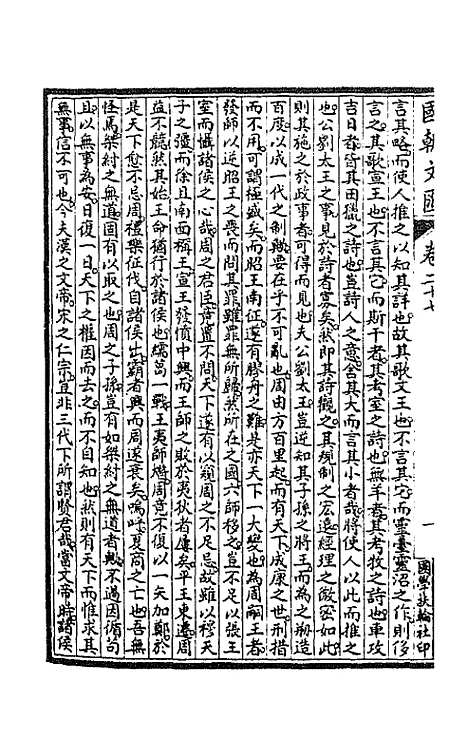 國朝文匯 卷二十七 一 國學扶輪社印
言其略而使人推之以知其詳也故其歌文王也不言其它而靈臺靈沼之作則侈
言之其歌宣王也不言其它而斯干者其考室之詩也無羊者其考牧之詩也車攻
吉日者皆其田獵之詩也豈詩人之意舍其大而言其小者哉將使人以此而推之
也公劉太王之事見於詩者寡矣然即其詩觀之其規制之宏遠經理之微密如此
則其施之於政事者可得而見也夫公劉太王豈逆知其子孫之將王而為之剏造
百度以成一代之制歟要在乎不可亂也周由方百里起而有天下成康之世刑措
而不用可謂極盛矣而昭王南征遂有膠舟之難是亦天下一大變也為周嗣王者
發師以逆昭王之喪而問其罪雖罪無所歸然所在之國六師移之豈不足以張王
室而懾諸侯之心哉周之君臣畜置不問天下遂有以窺周之不足忌故雖以穆天
子之彊而徐且南面稱王宣王發憤中興而王師之敗於夷狄者屢矣平王東遷周
益不競然其始王命猶行於諸侯也繻葛一戰王夷師熸周竟不復以一矢加鄭於
是天下愈不忌周禮樂征伐自諸侯出霸者興而周遂衰矣嗚呼夏商之亡也吾無
怪焉桀紂之無道固有以取之也周之子孫豈有如桀紂之無道者歟不過因循苟
且以無事為安日復一日天下之權因而去之而不自知也然則有天下而惟求其
無事信不可也今夫漢之文帝宋之仁宗豈非三代下所謂賢君哉當文帝時諸侯